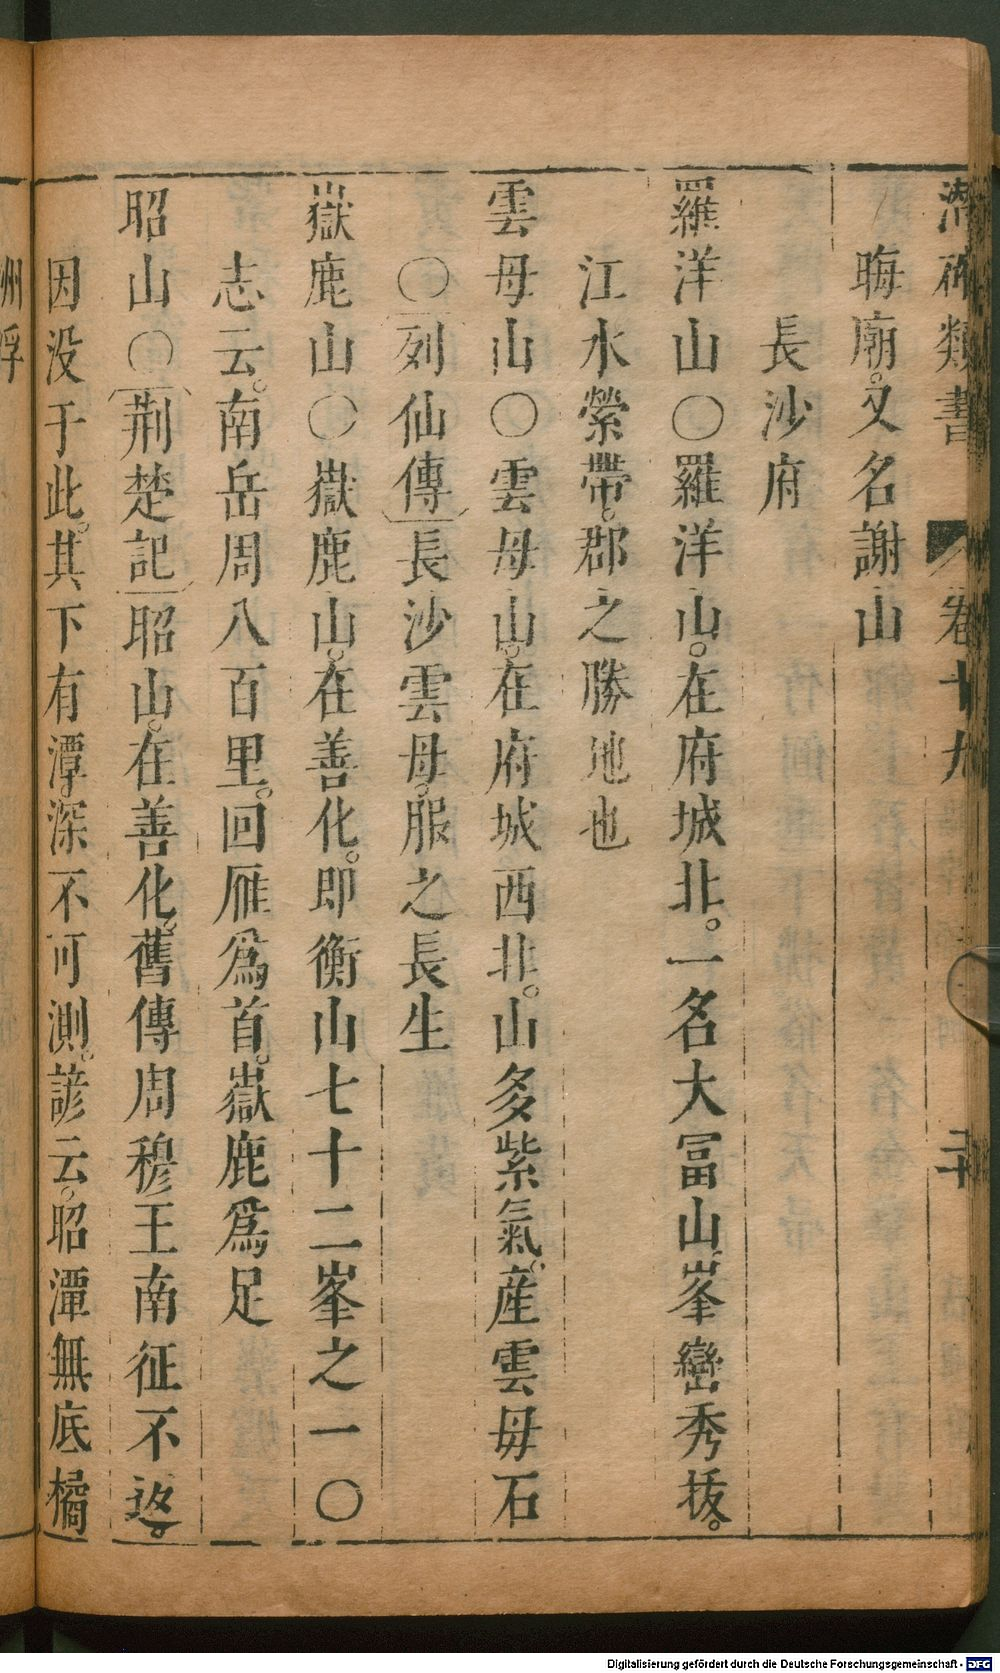 潛確類書 卷十九 三十
晦廟。又名謝山
長沙府
羅洋山○羅洋山。在府城北。一名大冨山。峯巒秀拔。
江水縈帶。郡之勝地也
雲母山○雲母山。在府城西北。山多紫氣。産雲母石
○列仙傳長沙雲母。服之長生
嶽鹿山○嶽鹿山。在善化。即衡山七十二峯之一○
志云。南岳周八百里。回雁爲首。嶽鹿爲足
昭山○荆楚記昭山。在善化。舊傳周穆王南征不返。
因没于此。其下有潭。深不可測。諺云。昭潭無底橘
洲浮
Digitalisierung gefördert durch die Deutsche Forschungsgemeinschaft - DFG